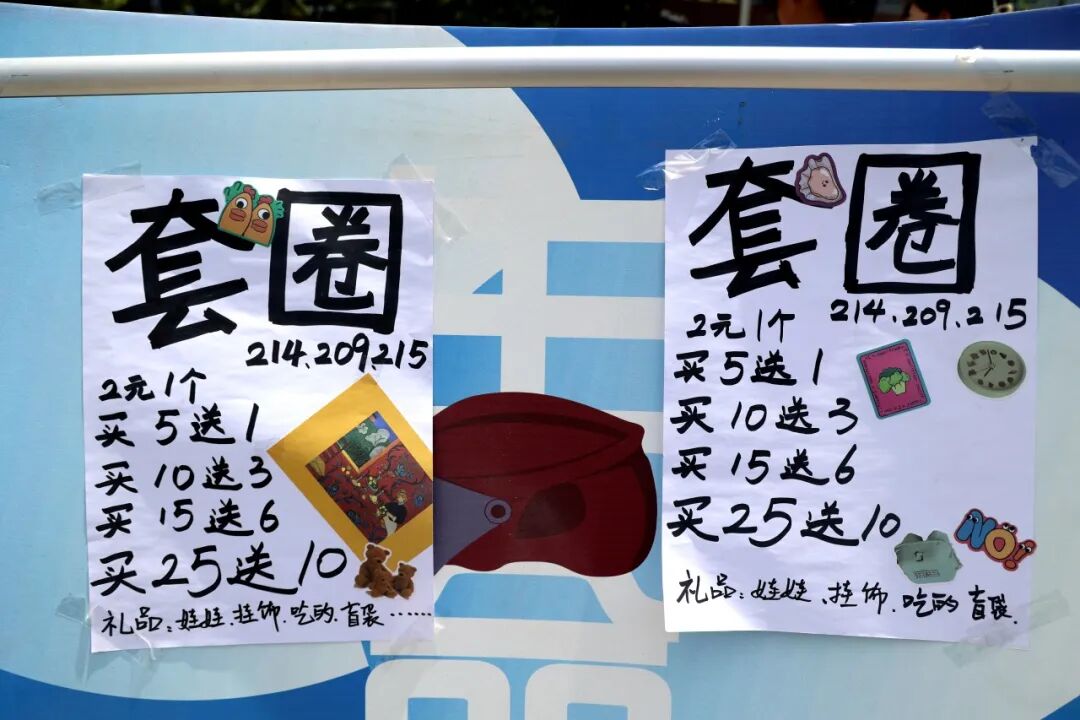 套圈
214、209、215
2元1个
买5送1
买10送3
买15送6
买25送10
礼品：娃娃、挂饰、吃的、盲袋……
套圈
214、209、215
2元1个
买5送1
买10送3
买15送6
买25送10
礼品：娃娃、挂饰、吃的、盲袋.
NO!